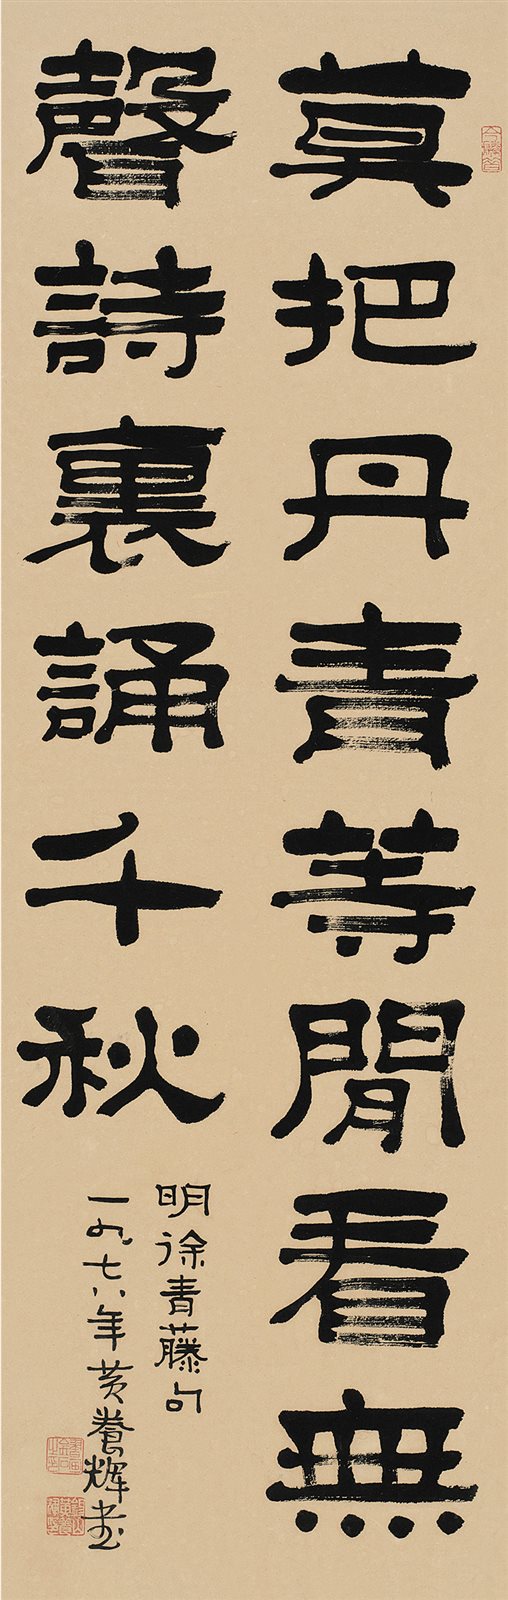 莫把丹青等閒看無
聲詩裏誦千秋
明徐青藤句
一九七八年黄養輝書